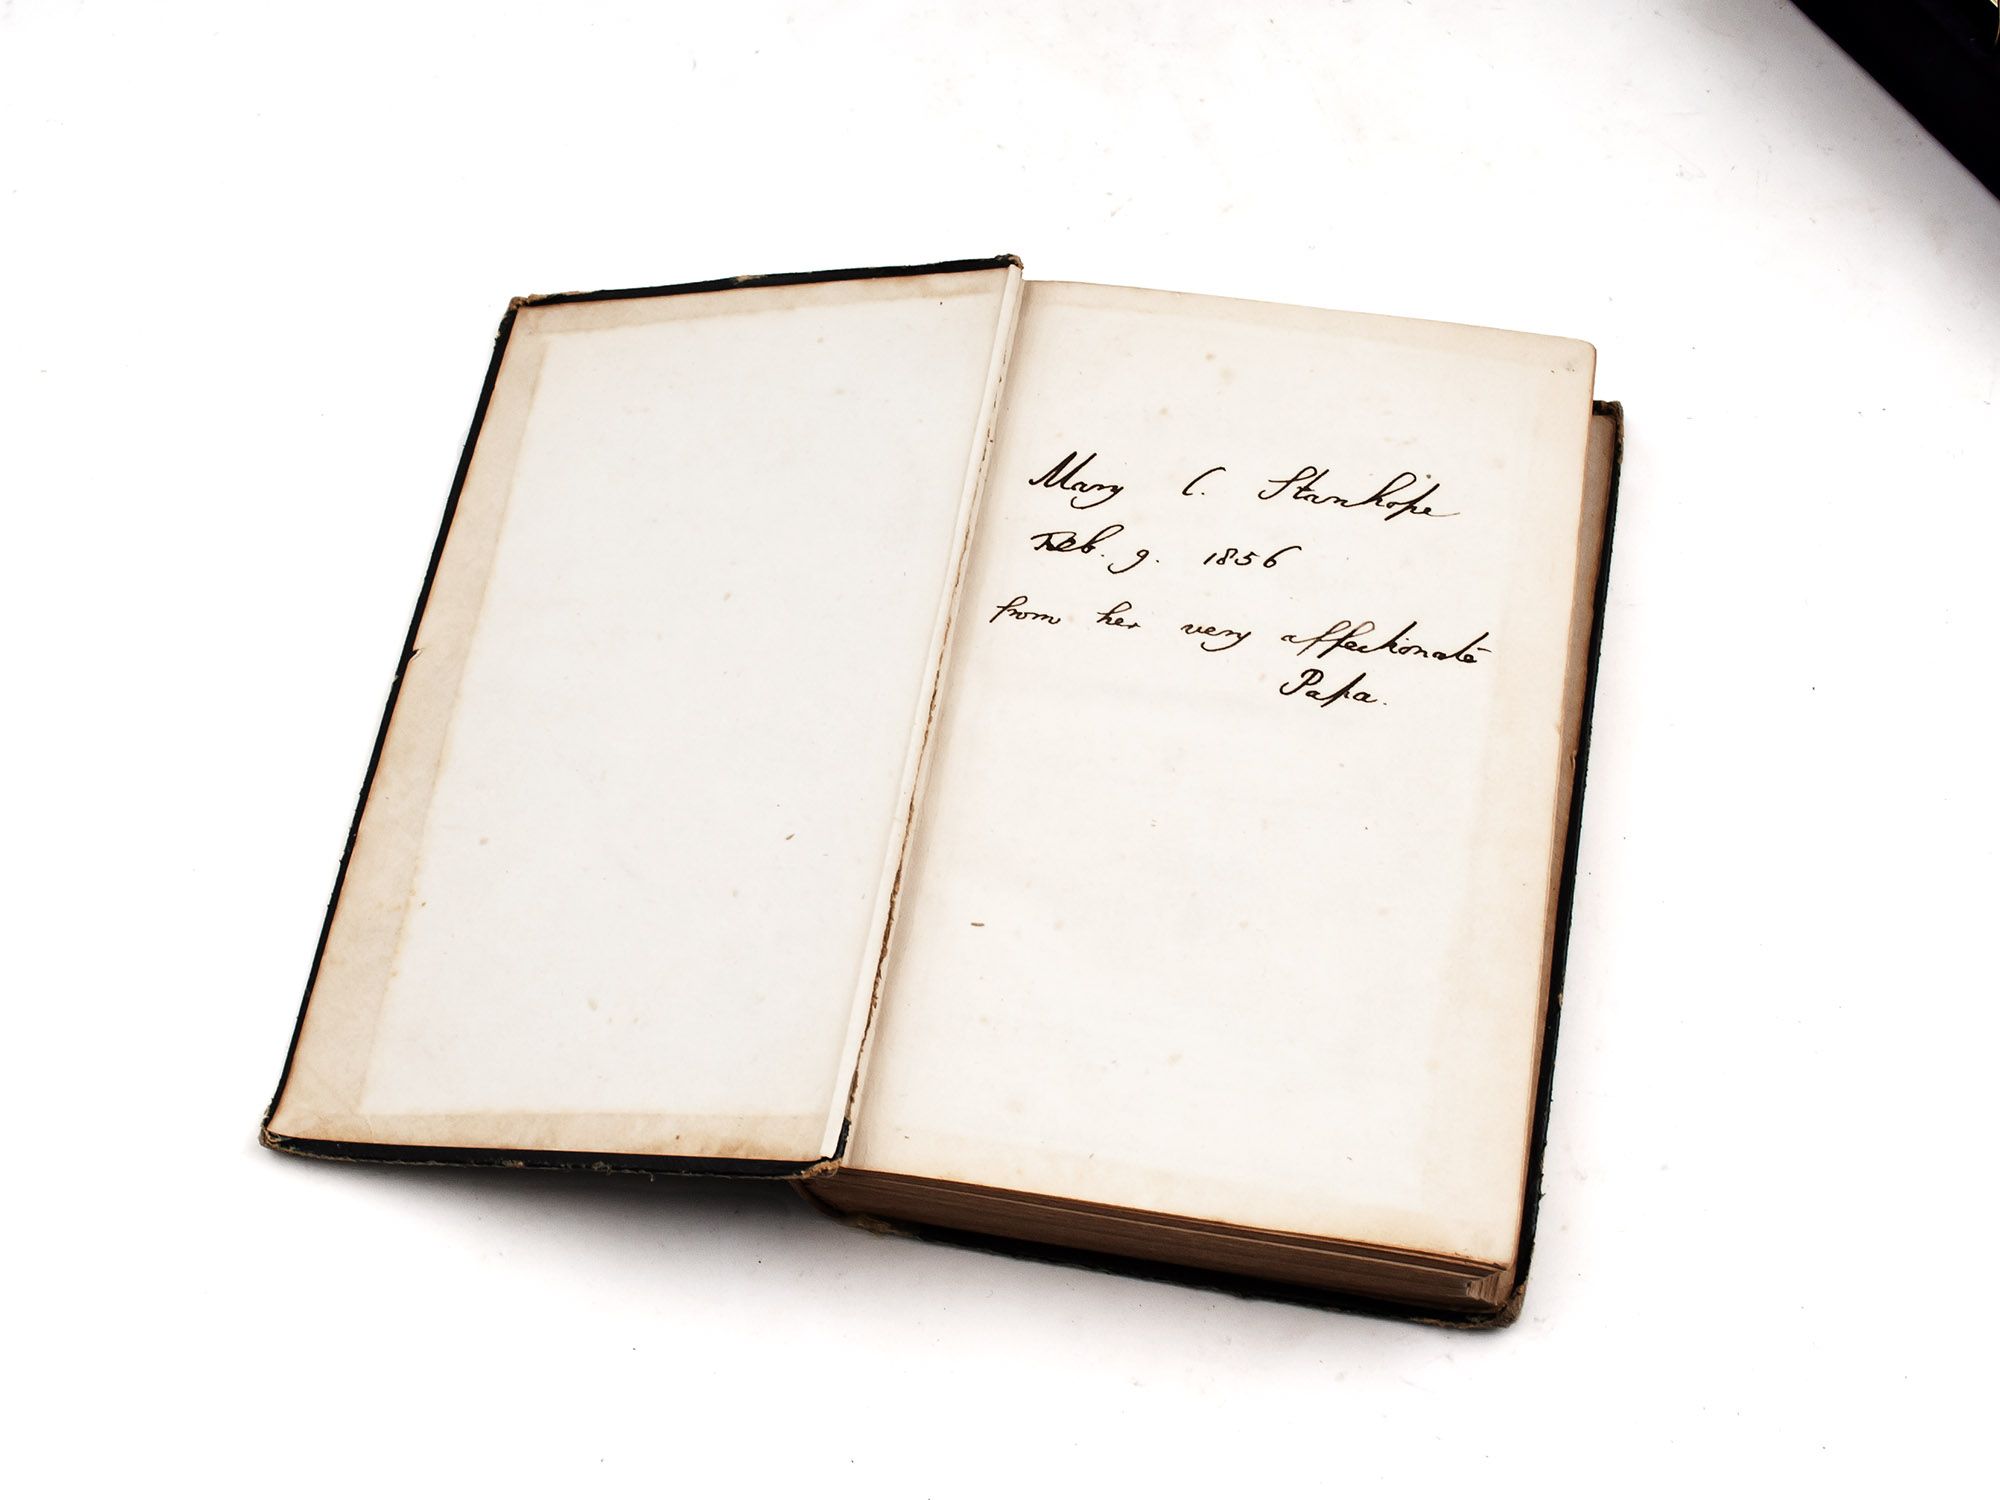 Mary C. Stanhope
Feb. 9. 1856
from her very affectionate
Papa.